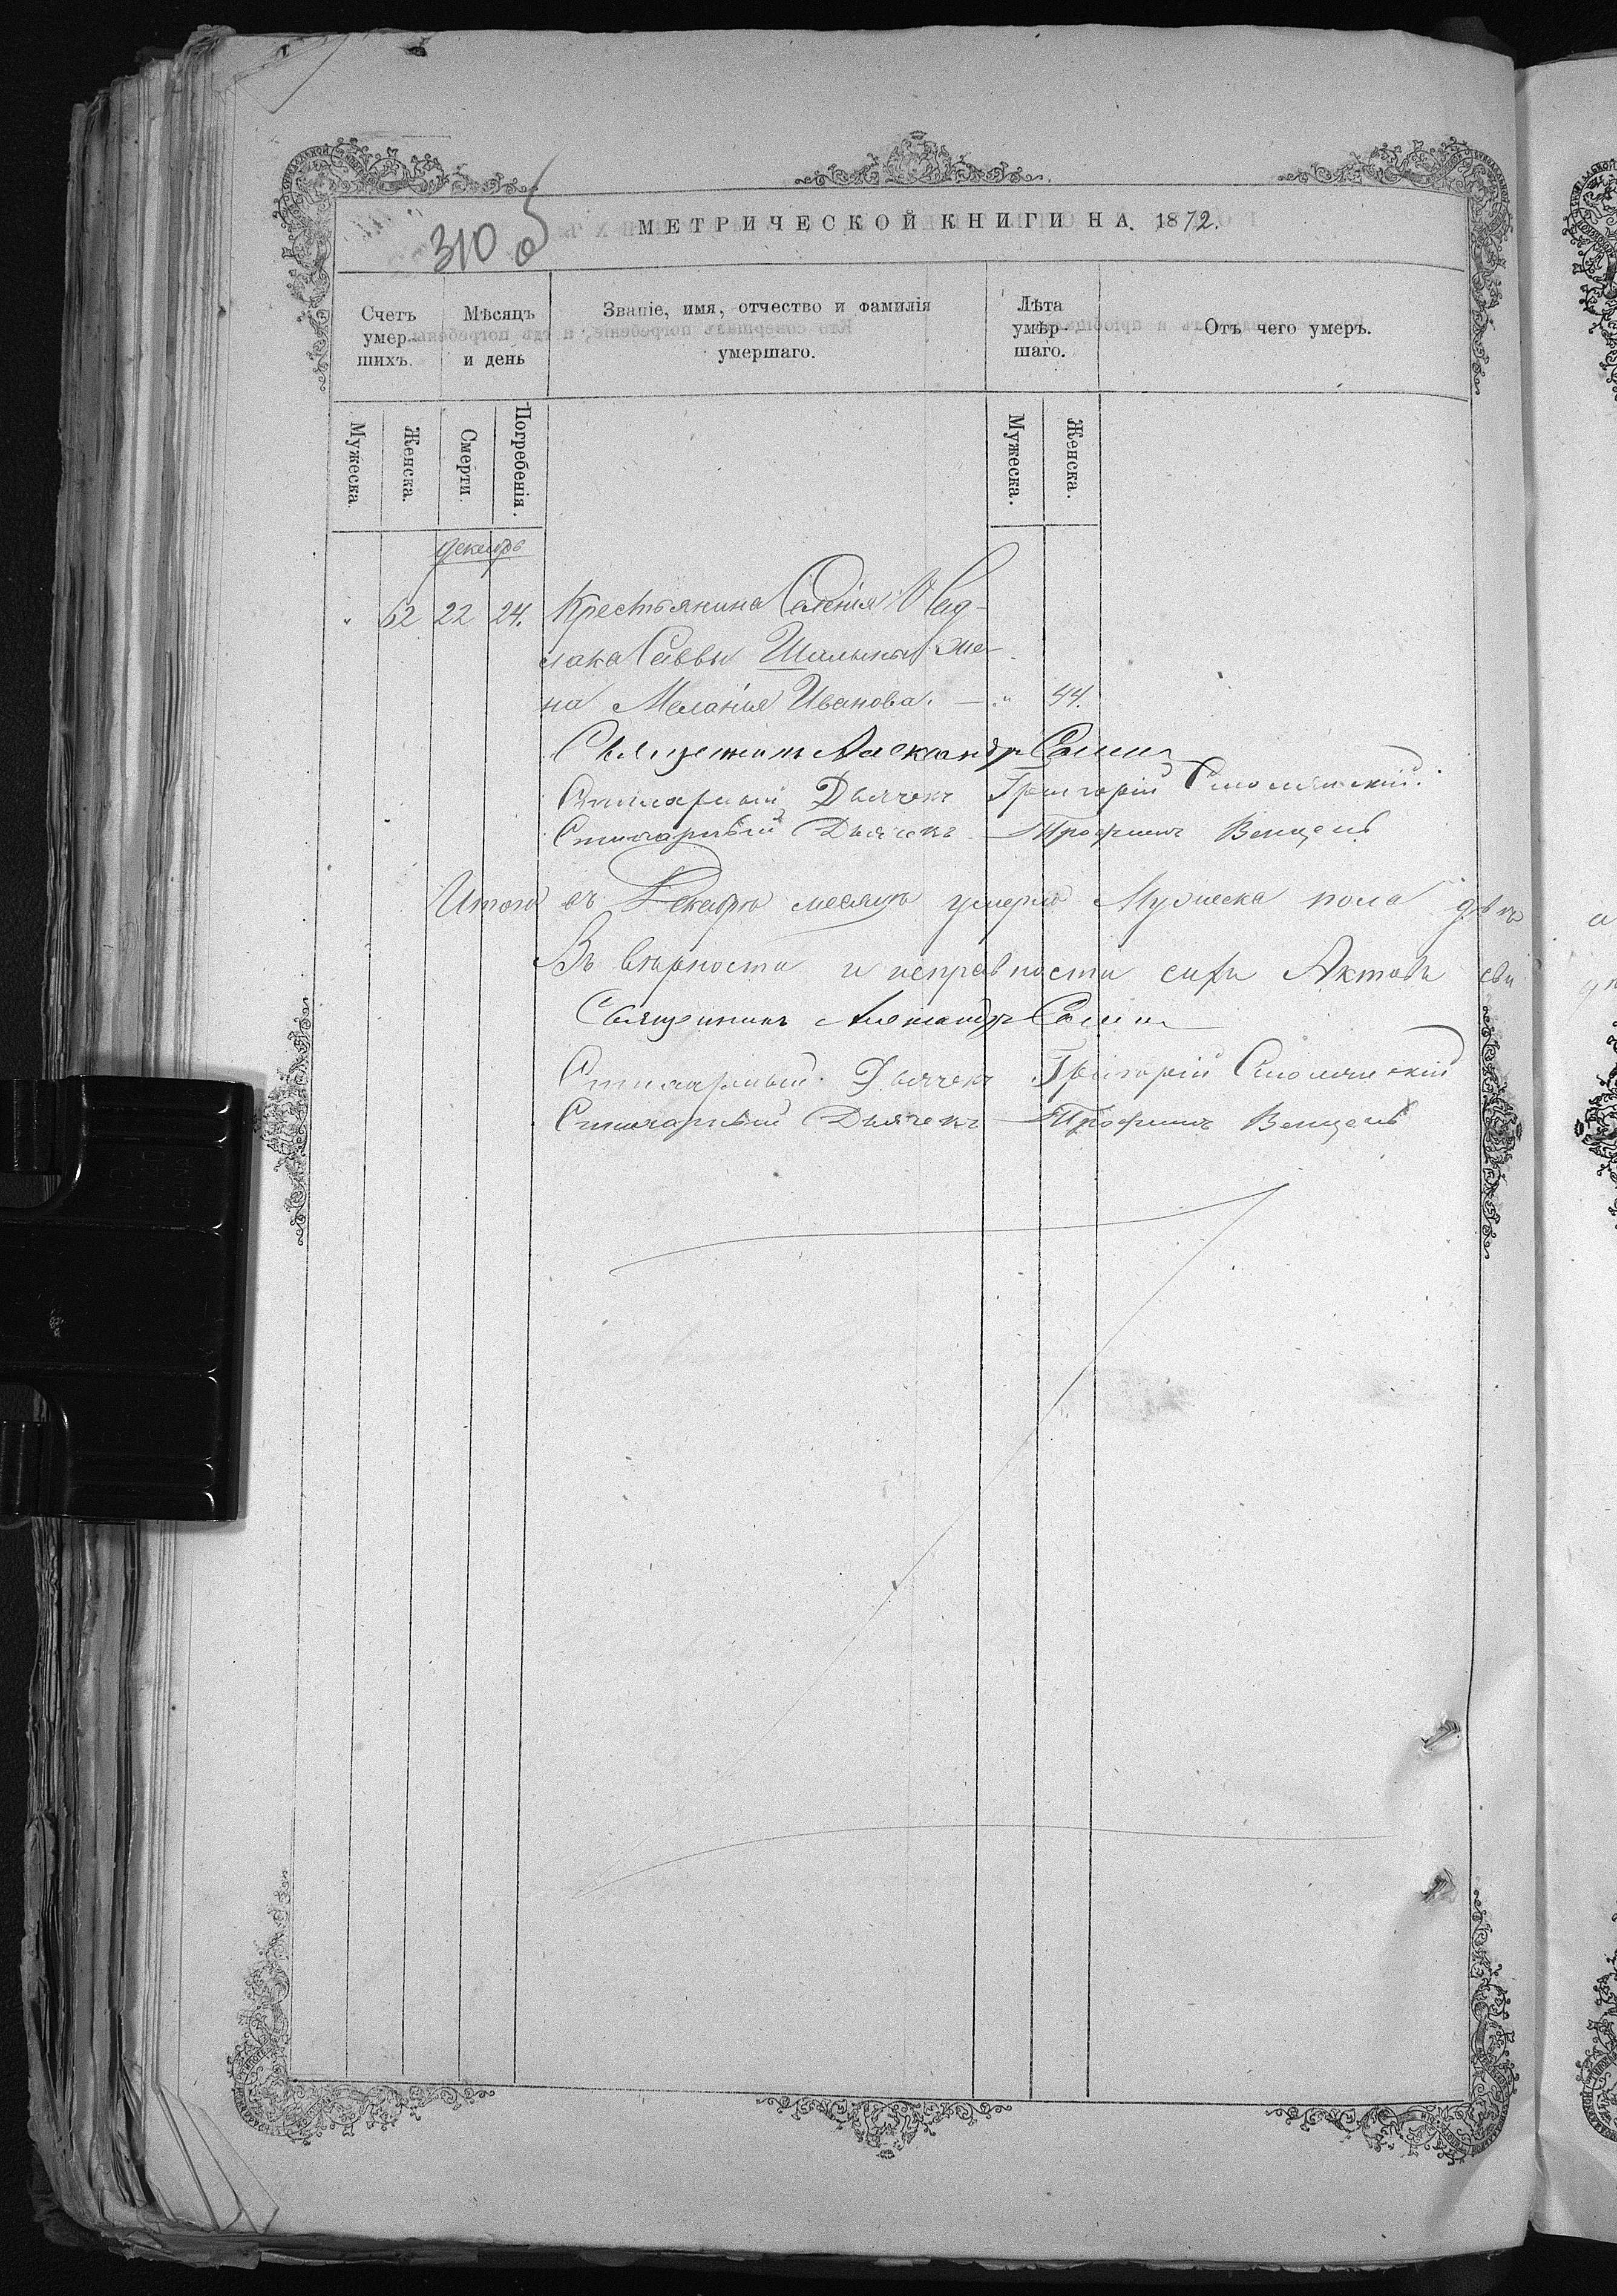 310 об
МЕТРИЧЕСКОЙ КНИГИ НА 1872.
Счетъ умер- шихъ.
Мѣсяцъ и день
Званіе, имя, отчество и фамилія умершаго.
Лѣта умер- шаго.
Отъ чего умеръ.
Мужеска. Женска. Смерти. Погребенія. Мужеска. Женска.
Декабрь
" 62 22 24. Крестьянина Селенія
Саввы же-
на Меланія Иванова. — " 44.
Священникъ Александръ
Дьячекъ Григорій Смолинскій.
Дьячекъ Трофимъ Венцель
Итого въ Декабрѣ месяцѣ умерло Мужеска пола
Въ верности и исправности сихъ Актовъ сви
Священникъ Александръ
Дьячекъ Григорій Смолинскій
Дьячекъ Трофимъ Венцель